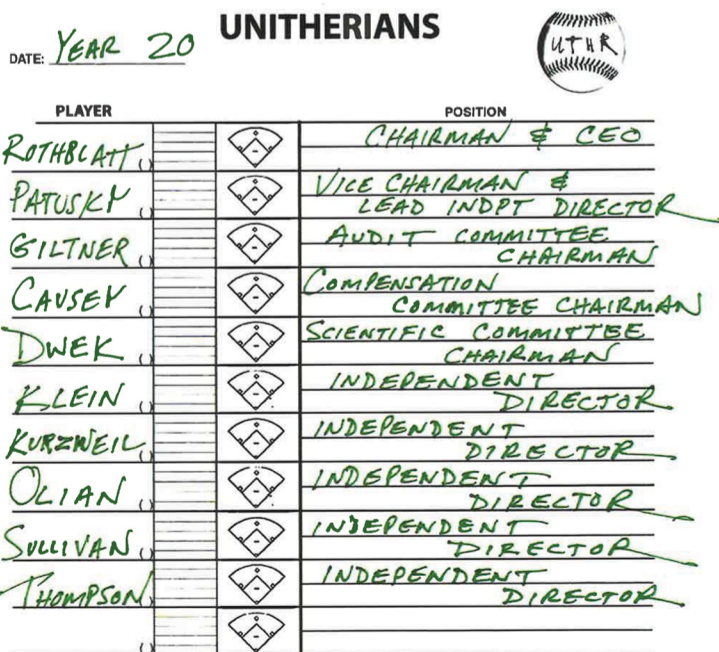 UNITHERIANS
DATE: YEAR 20
UTHR
PLAYER POSITION
ROTHBLATT () CHAIRMAN & CEO
PATUSKY () VICE CHAIRMAN &
LEAD INDPT DIRECTOR
GILTNER () AUDIT COMMITTEE
CHAIRMAN
CAUSEY () COMPENSATION
COMMITTEE CHAIRMAN
DWEK () SCIENTIFIC COMMITTEE
CHAIRMAN
KLEIN () INDEPENDENT
DIRECTOR
KURZWEIL () INDEPENDENT
DIRECTOR
OLIAN () INDEPENDENT
DIRECTOR
SULLIVAN () INDEPENDENT
DIRECTOR
THOMPSON () INDEPENDENT
DIRECTOR
()